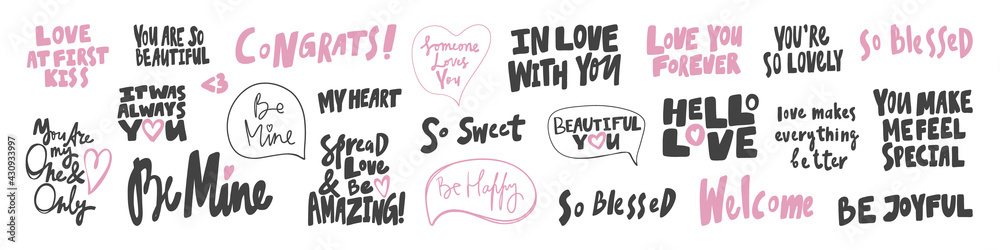 LOVE
AT FIRST
KISS
YOU ARE SO
BEAUTIFUL
<3
CONGRATS!
Someone
Loves
You
IN LOVE
WITH YOU
LOVE YOU
FOREVER
YOU'RE
SO LOVELY
SO BLESSED
IT WAS
ALWAYS
YOU
Be
Mine
MY HEART
So Sweet
BEAUTIFUL
YOU
HELLO
LOVE
love makes
everything
better
YOU MAKE
ME FEEL
SPECIAL
You Are
my
One &
Only
Be Mine
SPREAD
LOVE
& BE
AMAZING!
Be Happy
So BLESSED
Welcome
BE JOYFUL
Adobe Stock | #430933997